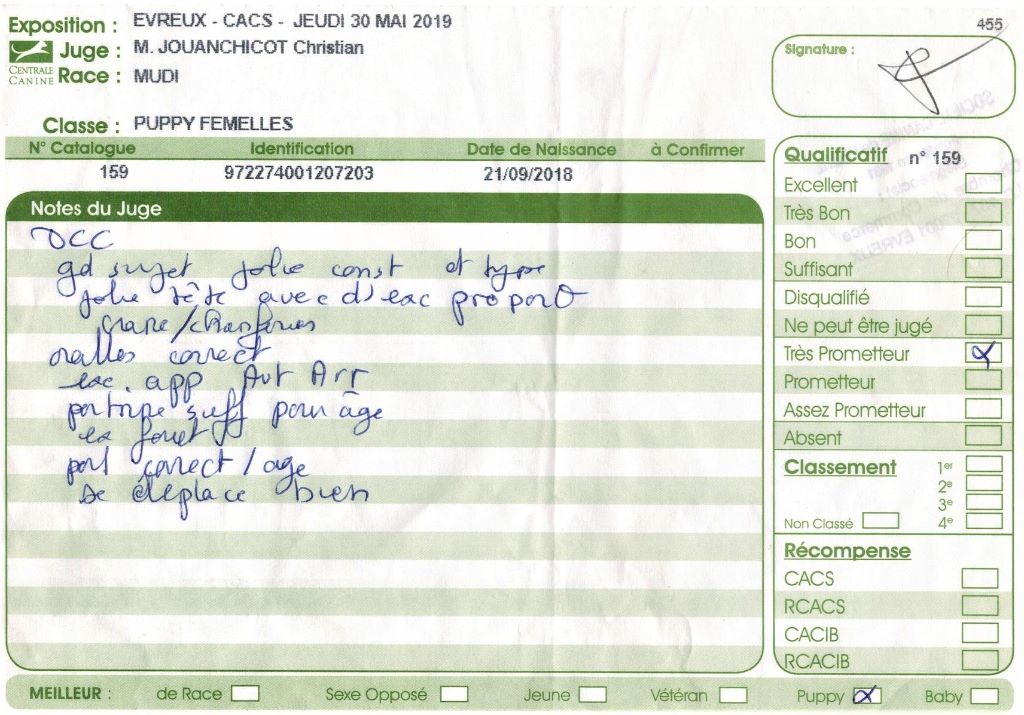 Exposition : EVREUX - CACS - JEUDI 30 MAI 2019
455
Juge : M. JOUANCHICOT Christian
CENTRALE CANINE
Race : MUDI
Signature :
Classe : PUPPY FEMELLES
N° Catalogue Identification Date de Naissance à Confirmer
159 972274001207203 21/09/2018
Notes du Juge
DCC
gd sujet jolie const et type
jolie tête avec d'exc proport
crane/chanfrein
oreilles correct
exc. app Avt Arr
poitrine suff pour âge
ex fouet
poil correct / age
se déplace bien
Qualificatif n° 159
Excellent
Très Bon
Bon
Suffisant
Disqualifié
Ne peut être jugé
Très Prometteur
Prometteur
Assez Prometteur
Absent
Classement 1er
2e
3e
Non Classé 4e
Récompense
CACS
RCACS
CACIB
RCACIB
MEILLEUR : de Race Sexe Opposé Jeune Vétéran Puppy Baby